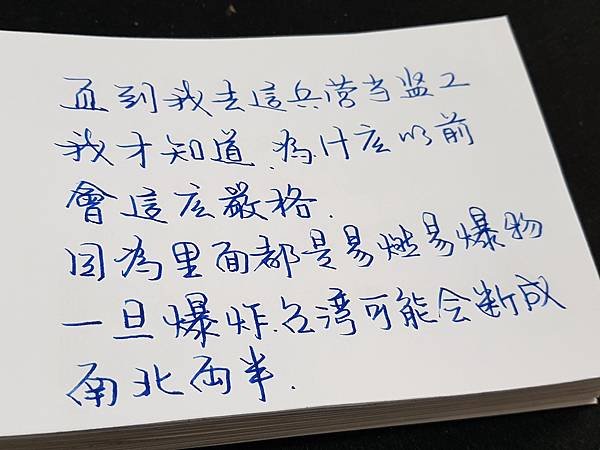 直到我去這兵营当监工
我才知道.為什庅以前
會這庅嚴格.
因為里面都是易燃易爆物
一旦爆炸.台湾可能会断成
南北両半.